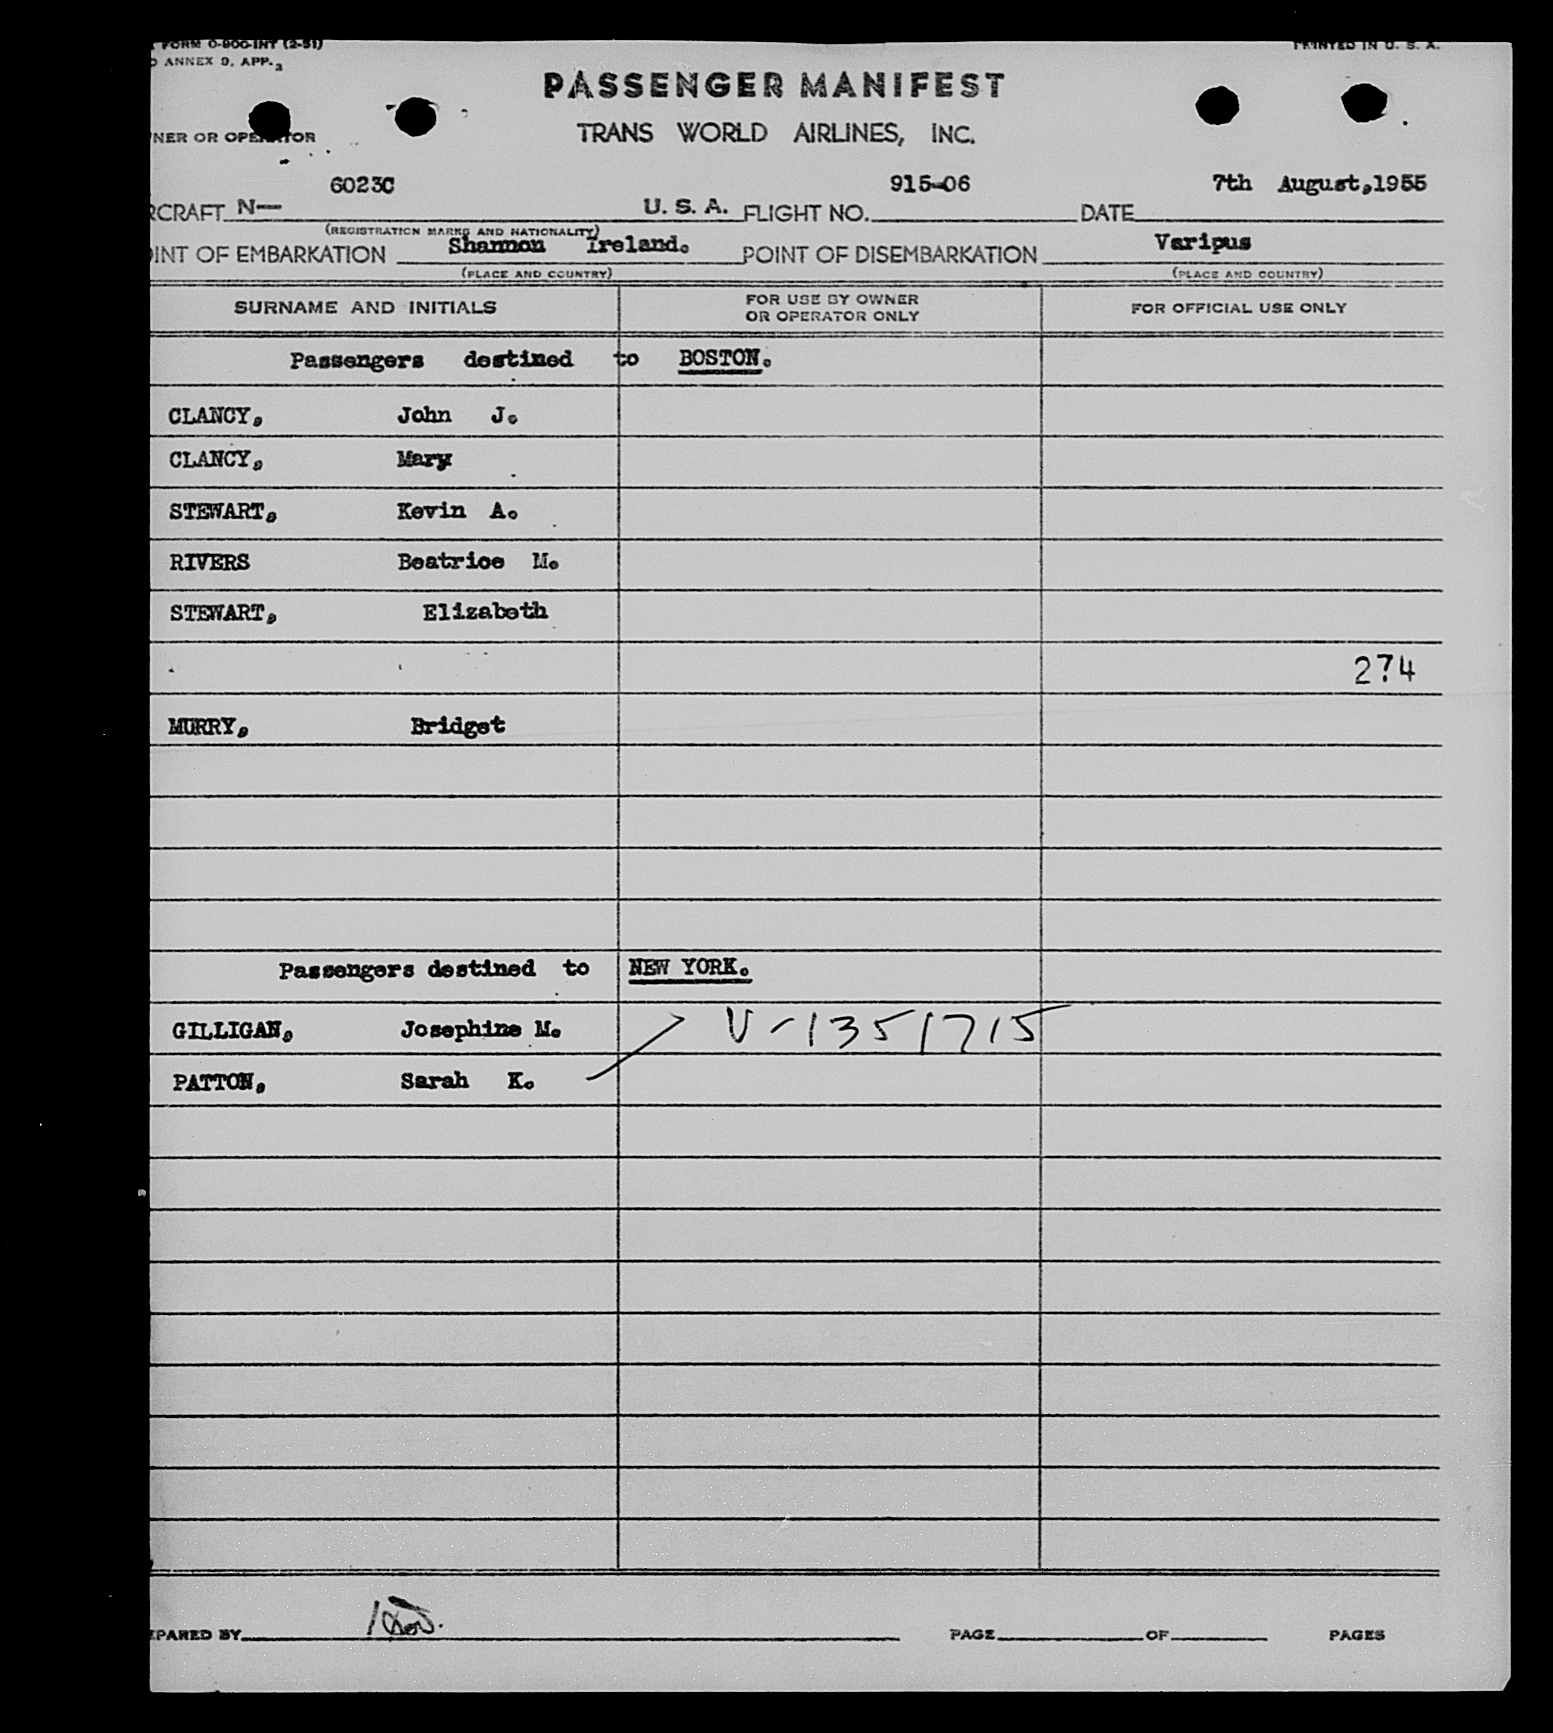 FORM O-800-INT (2-51)
PRINTED IN U. S. A.
O ANNEX 9, APP. 3
PASSENGER MANIFEST
NER OR OPERATOR
TRANS WORLD AIRLINES, INC.
6023C 915-06 7th August,1955
RCRAFT N— U. S. A. FLIGHT NO. DATE
(REGISTRATION MARKS AND NATIONALITY)
Shannon Ireland. Varipus
INT OF EMBARKATION POINT OF DISEMBARKATION
(PLACE AND COUNTRY) (PLACE AND COUNTRY)
SURNAME AND INITIALS FOR USE BY OWNER OR OPERATOR ONLY FOR OFFICIAL USE ONLY
Passengers destined to BOSTON.
CLANCY, John J.
CLANCY, Mary
STEWART, Kevin A.
RIVERS Beatrice M.
STEWART, Elizabeth
274
MURRY, Bridget
Passengers destined to NEW YORK.
GILLIGAN, Josephine M. V-1351715
PATTON, Sarah K.
EPARED BY PAGE OF PAGES